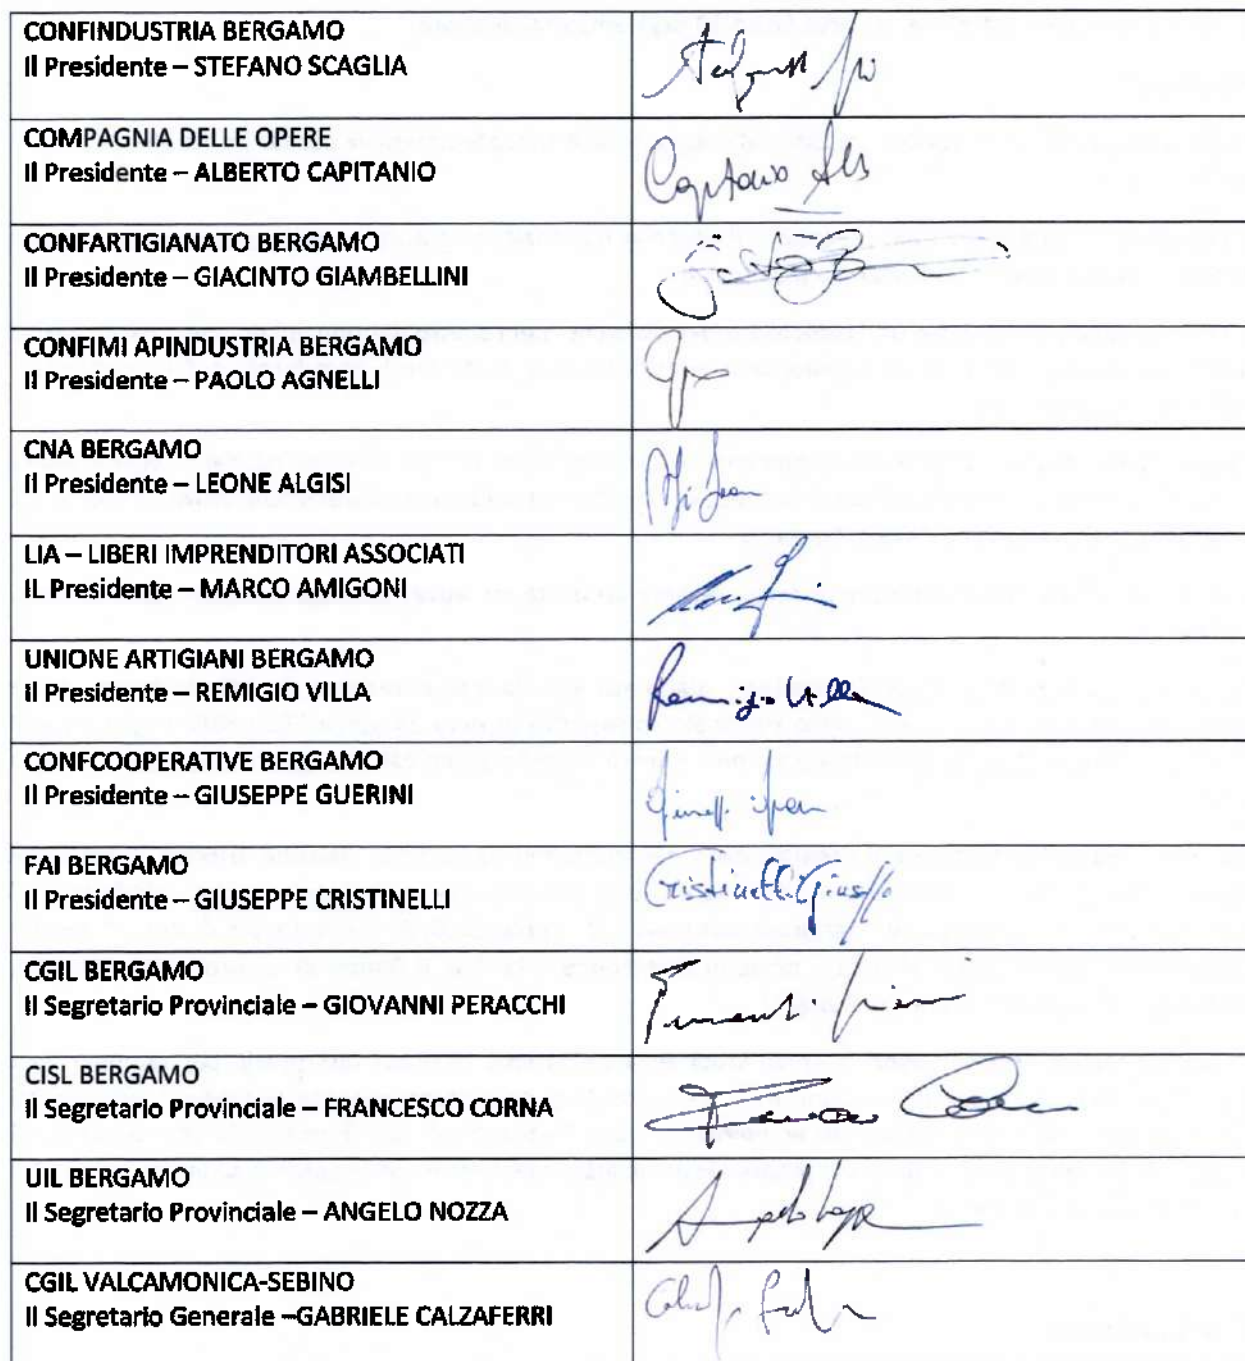 CONFINDUSTRIA BERGAMO
Il Presidente – STEFANO SCAGLIA
COMPAGNIA DELLE OPERE
Il Presidente – ALBERTO CAPITANIO
Capitanio Alb
CONFARTIGIANATO BERGAMO
Il Presidente – GIACINTO GIAMBELLINI
CONFIMI APINDUSTRIA BERGAMO
Il Presidente – PAOLO AGNELLI
CNA BERGAMO
Il Presidente – LEONE ALGISI
LIA – LIBERI IMPRENDITORI ASSOCIATI
IL Presidente – MARCO AMIGONI
UNIONE ARTIGIANI BERGAMO
Il Presidente – REMIGIO VILLA
Remigio Villa
CONFCOOPERATIVE BERGAMO
Il Presidente – GIUSEPPE GUERINI
FAI BERGAMO
Il Presidente – GIUSEPPE CRISTINELLI
Cristinelli Giuseppe
CGIL BERGAMO
Il Segretario Provinciale – GIOVANNI PERACCHI
CISL BERGAMO
Il Segretario Provinciale – FRANCESCO CORNA
UIL BERGAMO
Il Segretario Provinciale – ANGELO NOZZA
CGIL VALCAMONICA-SEBINO
Il Segretario Generale –GABRIELE CALZAFERRI